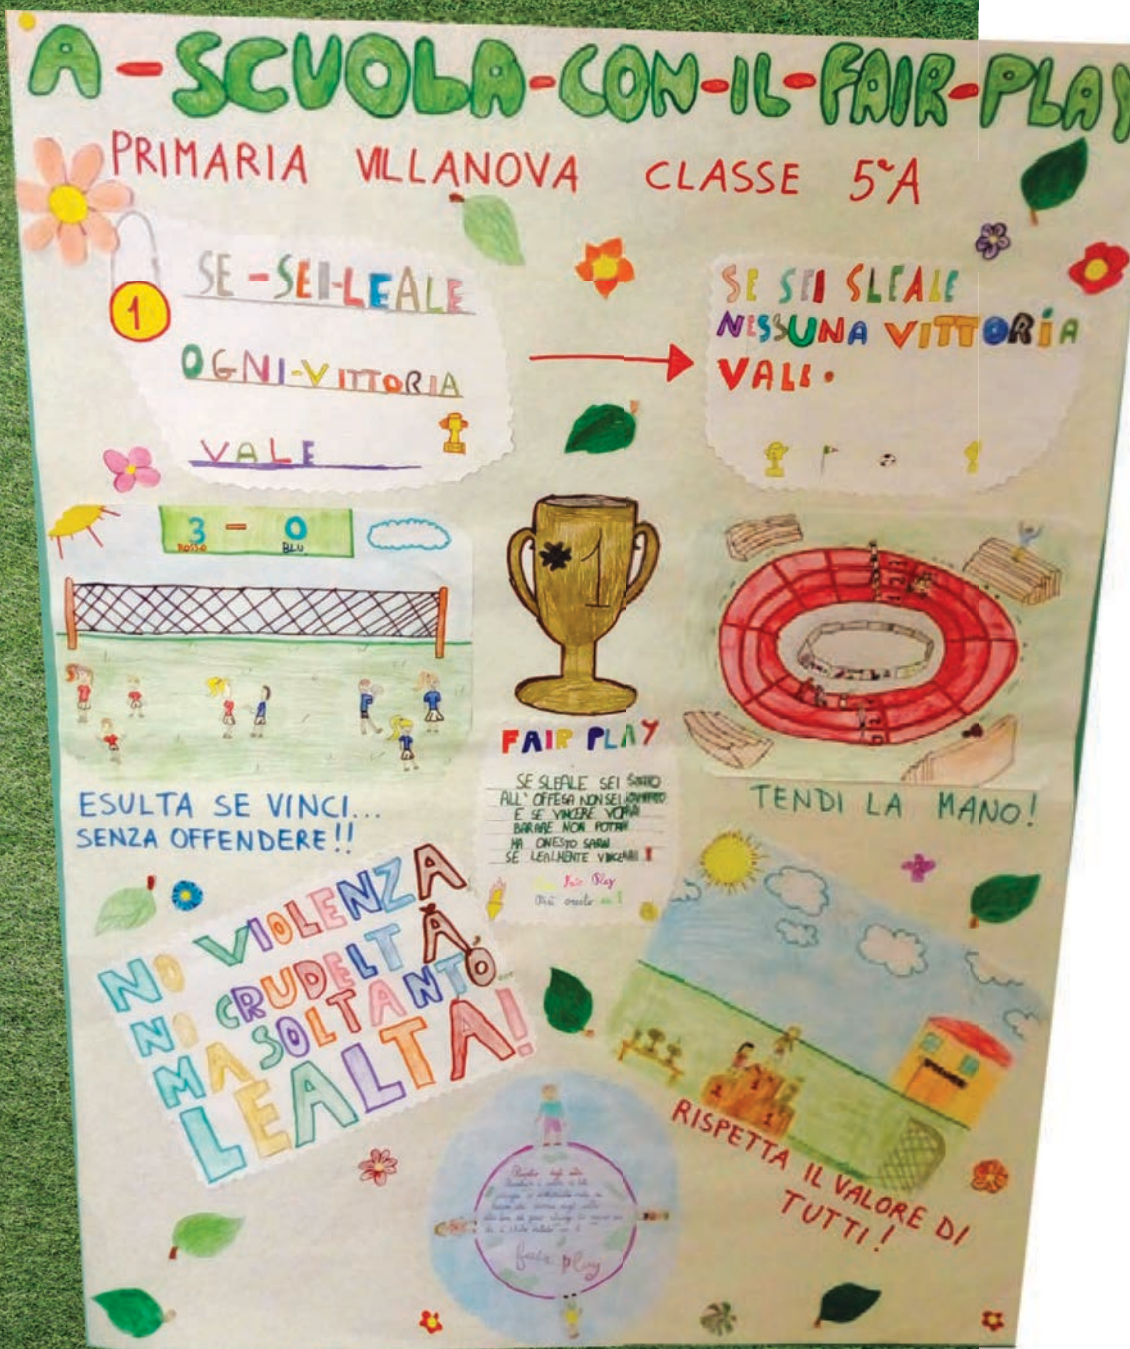 A-SCUOLA-CON-IL-FAIR-PLAY
PRIMARIA VILLANOVA CLASSE 5ªA
1
SE-SEI-LEALE
OGNI-VITTORIA
VALE
SE SEI SLEALE
NESSUNA VITTORIA
VALE.
3 - 0
ROSSO BLU
1
FAIR PLAY
SE SLEALE SEI
ALL'OFFESA NON SEI
E SE VINCERE VORRAI
BARARE NON POTRAI
MA ONESTO SARAI
SE LEALMENTE VINCERAI!
Fair Play
ESULTA SE VINCI...
SENZA OFFENDERE!!
TENDI LA MANO!
NO VIOLENZA
NO CRUDELTÀ
MA SOLTANTO...
LEALTA!
2 1 3
RISPETTA IL VALORE DI
TUTTI!
fair play